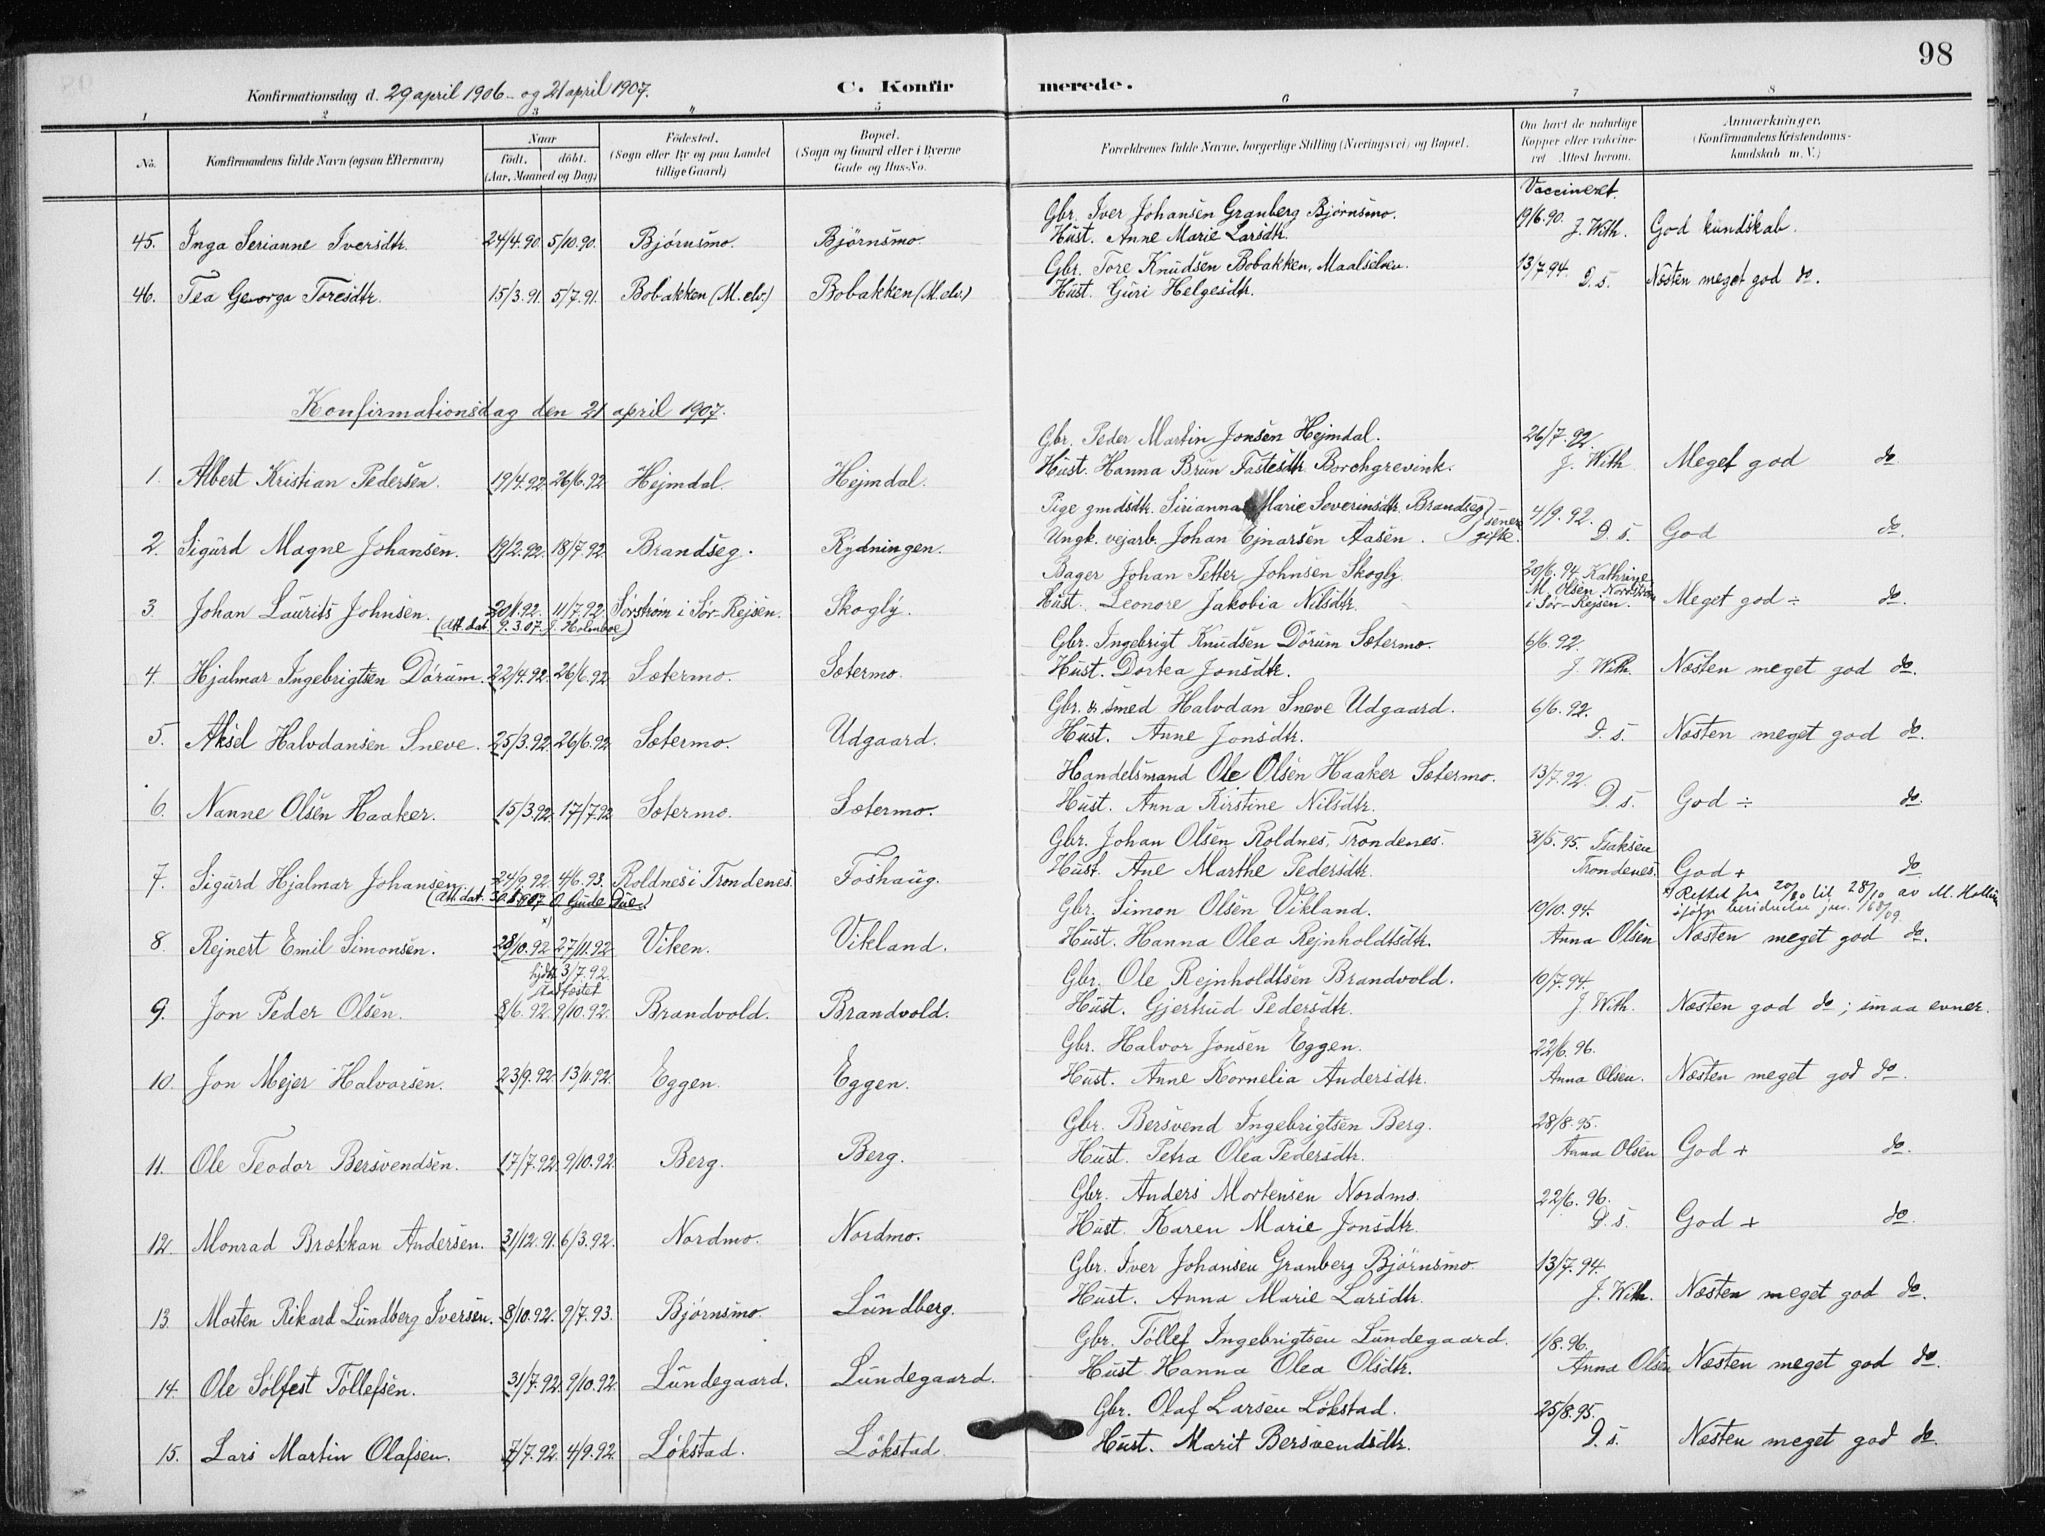 98
Konfirmationsdag d. 29 april 1906 - og 21 april 1907.
C. Konfirmerede.
1 2 3 4 5 6 7 8
No. Konfirmandens fulde Navn (ogsaa Efternavn) Naar født. døbt. (Aar, Maaned og Dag) Fødested. (Sogn eller By og paa Landet tillige Gaard) Bopæl. (Sogn og Gaard eller i Byerne Gade og Hus-No. Forældrenes fulde Navne, borgerlige Stilling (Næringsvei) og Bopæl. Om havt de naturlige Kopper eller vakcineret Attest herom. Anmærkninger. (Konfirmandens Kristendomskundskab m. V.)
Vaccineret.
45. Inga Serianne Iversdtr. 24/4.90. 5/10.90. Bjørnsmo. Bjørnsmo. Gbr. Iver Johansen Granberg Bjørnsmo. Hust. Anne Marie Larsdtr. 19/6.90. J. With. God kundskab.
46. Tea Georga Toresdtr. 15/3.91. 5/7.91. Bobakken (M.elv.) Bobakken (M.elv.) Gbr. Tore Knudsen Bobakken, Maalselven. Hust. Guri Helgesdtr. 13/7.94. D. s. Næsten meget god do.
Konfirmationsdag den 21 april 1907.
1. Albert Kristian Pedersen. 19/4.92. 26/6.92 Hejmdal. Hejmdal. Gbr. Peder Martin Jonsen Hejmdal. Hust. Hanna Brun Fastesdtr. Borchgrevink. 26/7.92. J. With Meget god do.
2. Sigurd Magne Johansen. 19/2.92. 18/7.92 Brandseg. Rydningen. Pige gmdsdtr. Sirianna Marie Severinsdtr. Brandseg Ungk. vejarb. Johan Ejnarsen Aasen. senere gifte. 4/9.92. D. s. God do.
3. Johan Laurits Johnsen. 20/1.92. 11/7.92. Sørstrøm i Sør-Rejsen. Skogly. Bager Johan Petter Johnsen Skogly. Hust. Leonore Jakobia Nilsdtr. 20/6.94 Kathrine M. Olsen Nordstrøm i Sør-Rejsen. Meget god ÷ do.
(Att. dat. 9.3.07. J. Holmboe)
4. Hjalmar Ingebrigtsen Dørum. 22/4.92. 26/6.92 Sætermo. Sætermo. Gbr. Ingebrigt Knudsen Dørum Sætermo. Hust. Dortea Jonsdtr. 6/6.92. J. With. Næsten meget god do.
5. Aksel Halvdansen Sneve. 25/3.92. 26/6.92 Sætermo. Udgaard. Gbr. & smed Halvdan Sneve Udgaard. Hust. Anne Jonsdtr. 6/6.92. D. s. Næsten meget god do.
6. Nanne Olsen Haaker. 15/3.92. 17/7.92 Sætermo. Sætermo. Handelsmand Ole Olsen Haaker Sætermo. Hust. Anna Kirstine Nilsdtr. 13/7.92. D. s. God ÷ do.
7. Sigurd Hjalmar Johansen 24/9.92. 4/6.93. Roldnes i Trondenes. Foshaug. Gbr. Johan Olsen Roldnes, Trondenes. Hust. Ane Marthe Pedersdtr. 31/5.95. Isaksen Trondenes. God + do.
(Att. dat. 30.1.1907 O. Gude Due.)
8. Rejnert Emil Simonsen. 28/10.92 x) 27/11.92 Viken. Vikland. Gbr. Simon Olsen Vikland. Hust. Hanna Olea Rejnholdtsdtr. 10/10.94. Anna Olsen Næsten meget god do.
x) Rettet fra 20/10 til 28/10 av
9. Jon Peder Olsen. 8/6.92. hjdt. 3/7.92. stadfæstet 9/10.92. Brandvold. Brandvold. Gbr. Ole Rejnholdtsen Brandvold. Hust. Gjertrud Pedersdtr. 10/7.94. J. With. Næsten god do; smaa evner.
10. Jon Mejer Halvorsen. 23/9.92. 13/11.92. Eggen. Eggen. Gbr. Halvor Jonsen Eggen. Hust. Anne Kornelia Andersdtr. 22/6.96. Anna Olsen. Næsten meget god do.
11. Ole Teodor Bersvendsen. 17/7.92. 9/10.92. Berg. Berg. Gbr. Bersvend Ingebrigtsen Berg. Hust. Petra Olea Pedersdtr. 28/8.95. Anna Olsen God + do.
12. Monrad Brækkan Andersen. 31/12.91. 6/3.92. Nordmo. Nordmo. Gbr. Anders Mortensen Nordmo. Hust. Karen Marie Jonsdtr. 22/6.96. D. s. God + do.
13. Morten Rikard Lundberg Iversen. 8/10.92. 9/7.93. Bjørnsmo. Lundberg. Gbr. Iver Johansen Granberg Bjørnsmo. Hust. Anna Marie Larsdtr. 13/7.94. J. With. Næsten meget god do.
14. Ole Sølfest Tøllefsen. 31/7.92. 9/10.92. Lundegaard. Lundegaard. Gbr. Tøllef Ingebrigtsen Lundegaard. Hust. Hanna Olea Olsdtr. 1/8.96. Anna Olsen Næsten meget god do.
15. Lars Martin Olafsen. 7/7.92. 4/9.92. Løkstad. Løkstad. Gbr. Olaf Larsen Løkstad. Hust. Marit Bersvendsdtr. 25/8.95. D. s. Næsten meget god do.